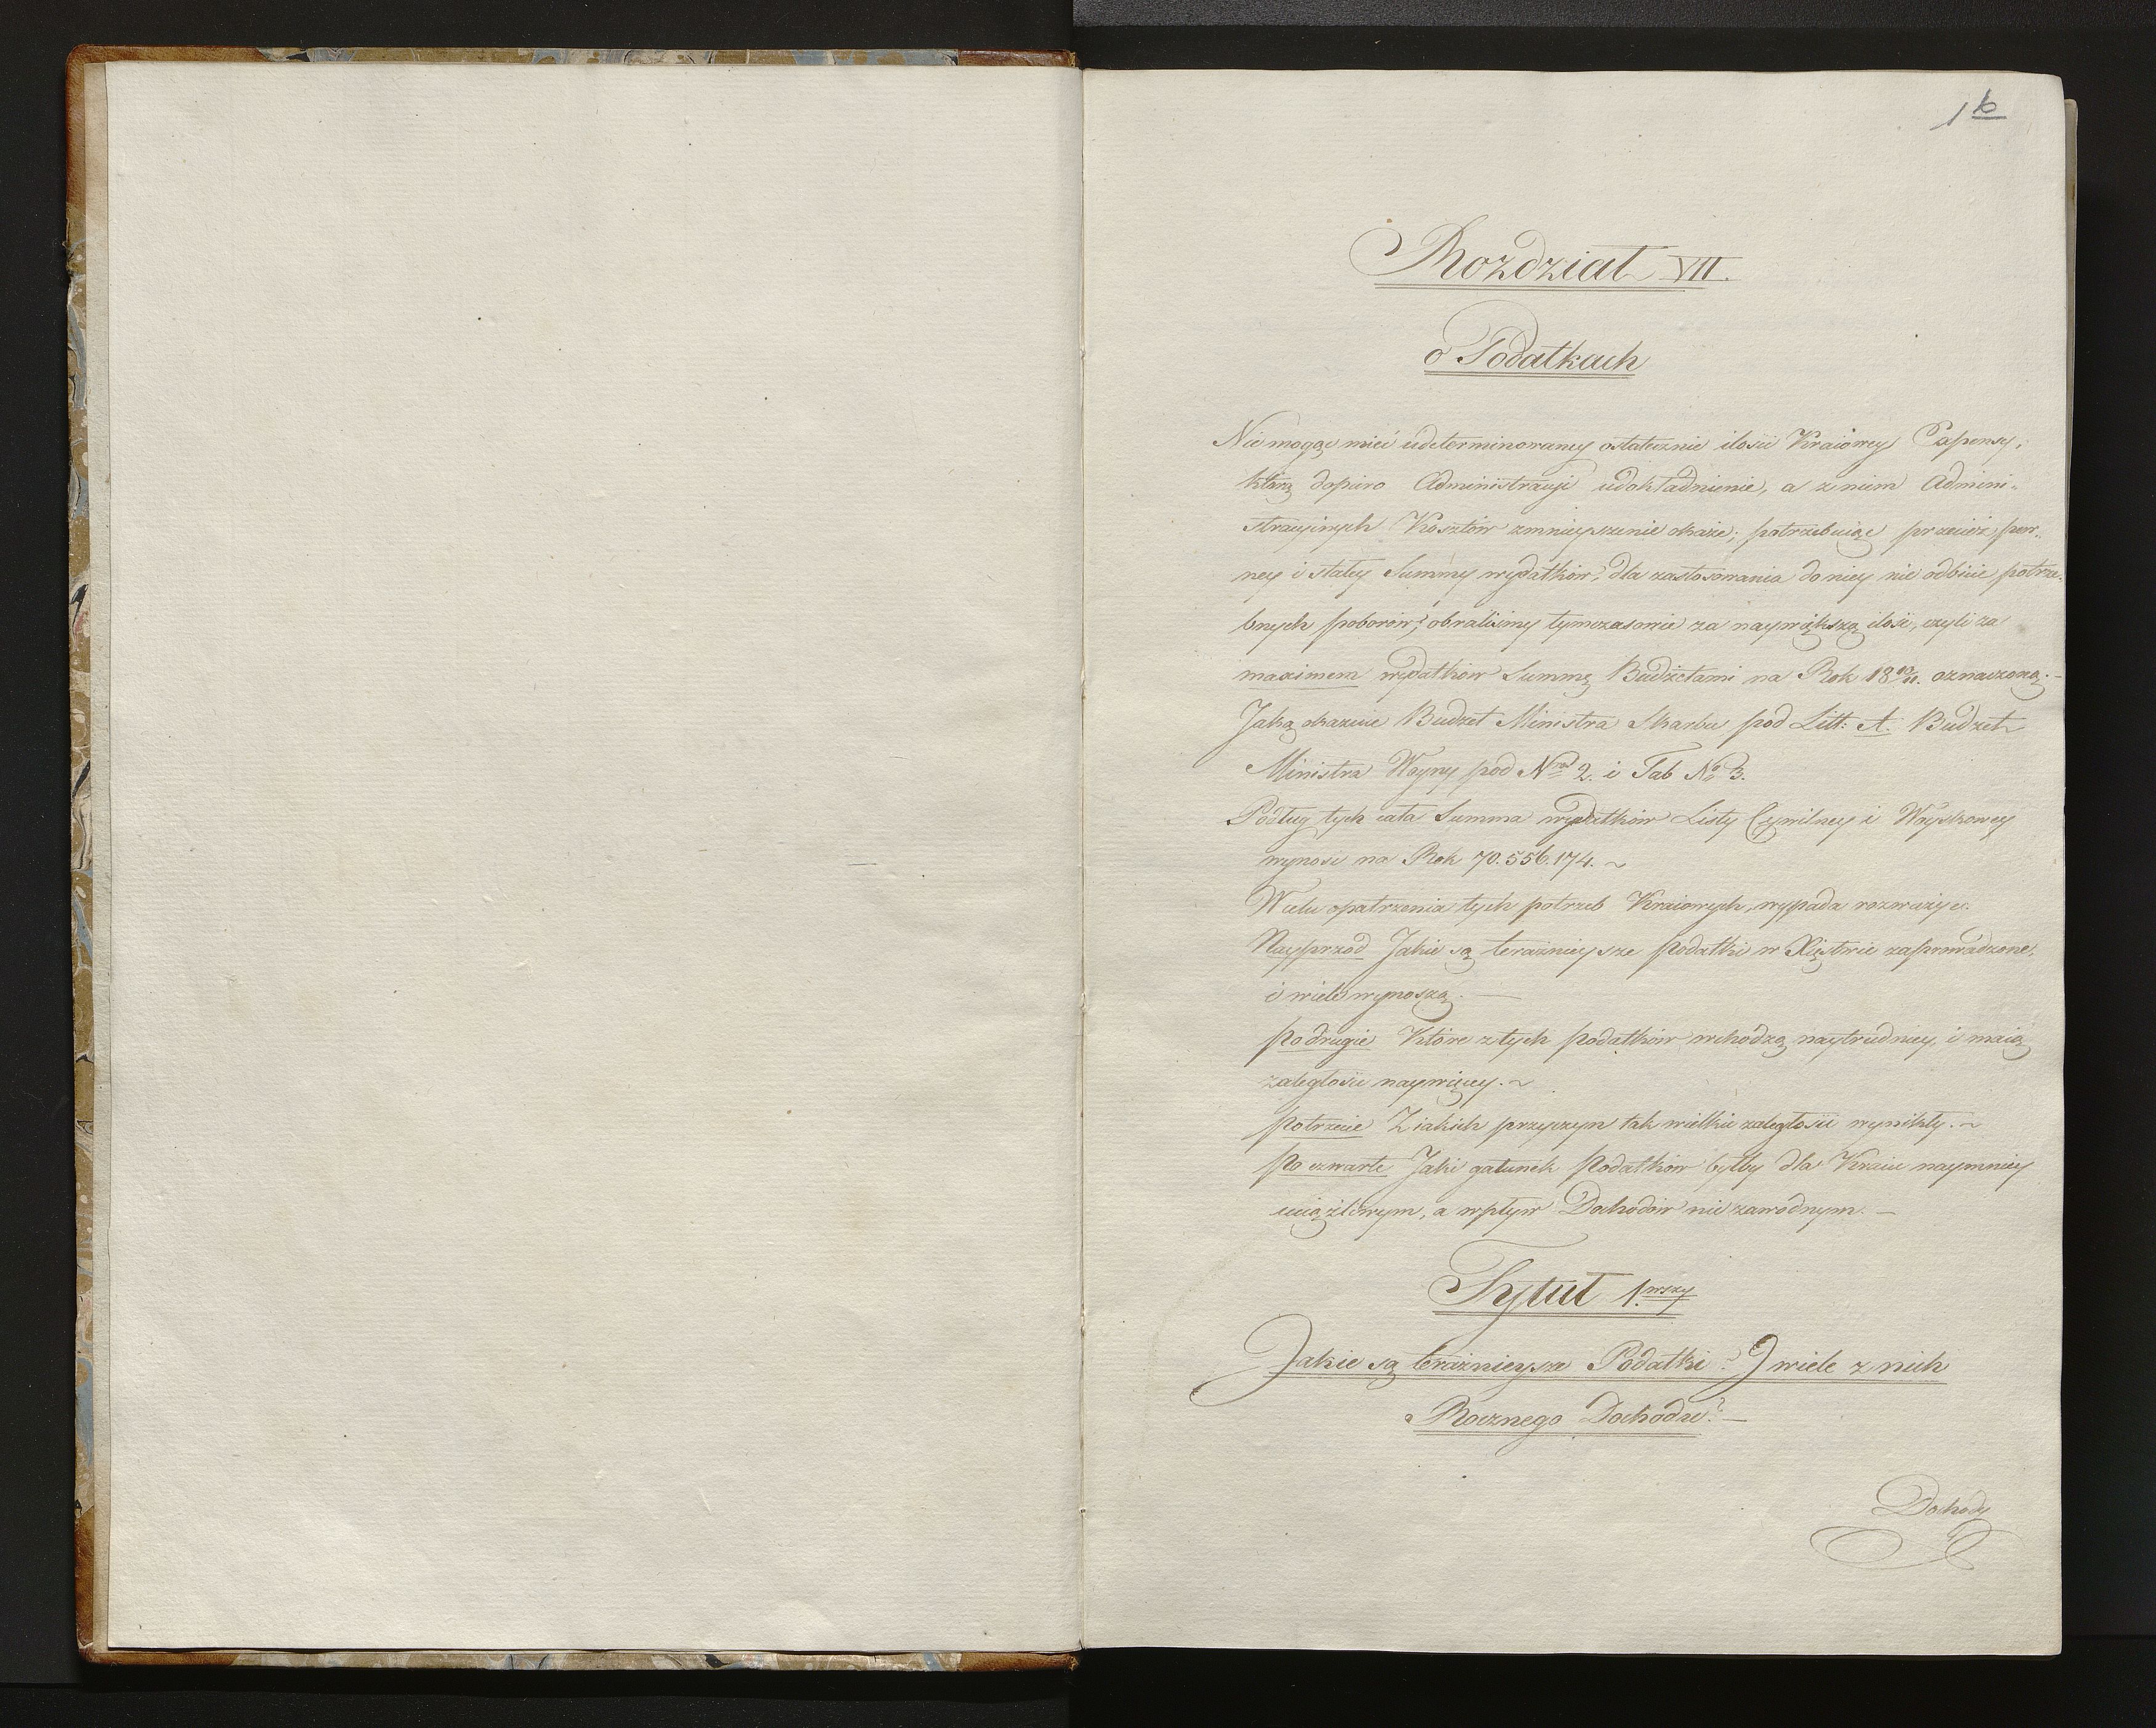 1 b
Rozdział VII.
o Podatkach
Nie mogąc mieć udeterminowaney ostatecznie ilości Kraiowey Expensy,
którą dopiero Administracyi udokładnienie, a z niem Admini-
stracyinych Kosztów zmnieyszenie okaże; potrzebuiąc przecież pew-
ney i stałey Summy wydatków, dla zastosowania do niey nie odbicie potrze-
bnych poborów; obraliśmy tymczasowie za naywiększą ilość, czyli za
maximem wydatków Summę Budżetami na Rok 18 10/11. oznaczoną.-
Jaką okazuie Budzet Ministra Skarbu pod Litt: A. Budzet
Ministra Woyny pod Nrod 2. i Tab No 3.
Podług tych cała Summa wydatków Listy Cywilney i Woyskowey
wynosi na Rok 70.556.174. ~
W celu opatrzenia tych potrzeb Kraiowych, wypada rozważyć.
Nayprzód Jakie są teraźnieysze podatki w Xięstwie zaprowadzone,
i wiele wynoszą. —
podrugie Które z tych podatków wchodzą naytrudniey, i maią
zaległości naywięcey. ~
potrzecie Z iakich przyczyn tak wielkie zaległości wynikły. ~
po czwarte Jaki gatunek Podatków byłby dla Kraiu naymniey
uciążliwym, a wpływ Dochodów nie zawodnym. —
Tytuł 1.wszy
Jakie są teraźnieysze Podatki? J wiele z nich
Rocznego Dochodu? —
Dochody